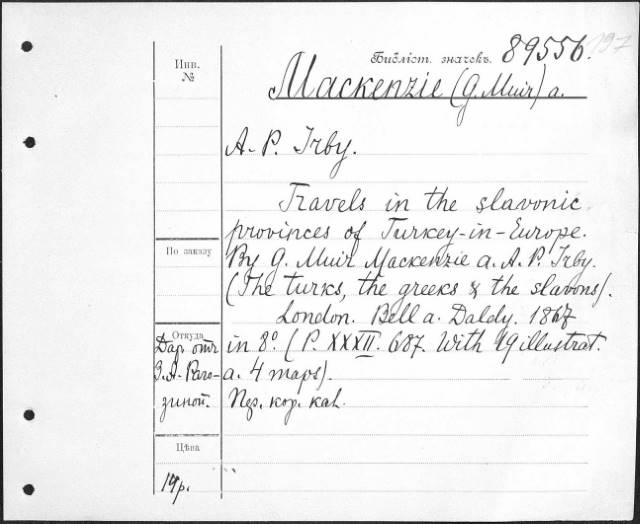 Инв.
№
Библіот. значекъ. 89556. 197
Mackenzie (G. Muir) a.
A. P. Irby.
Travels in the slavonic
provinces of Turkey-in-Europe.
По заказу
By G. Muir Mackenzie a. A. P. Irby.
(The turks, the greeks & the slavons).
London. Bell a. Daldy. 1867
Откуда
Дар отъ
in 8° (P. XXXII. 687. With 19 illustrat.
З. А. Раго-
a. 4 maps).
зиной.
кор. kal.
Цѣна
14р.